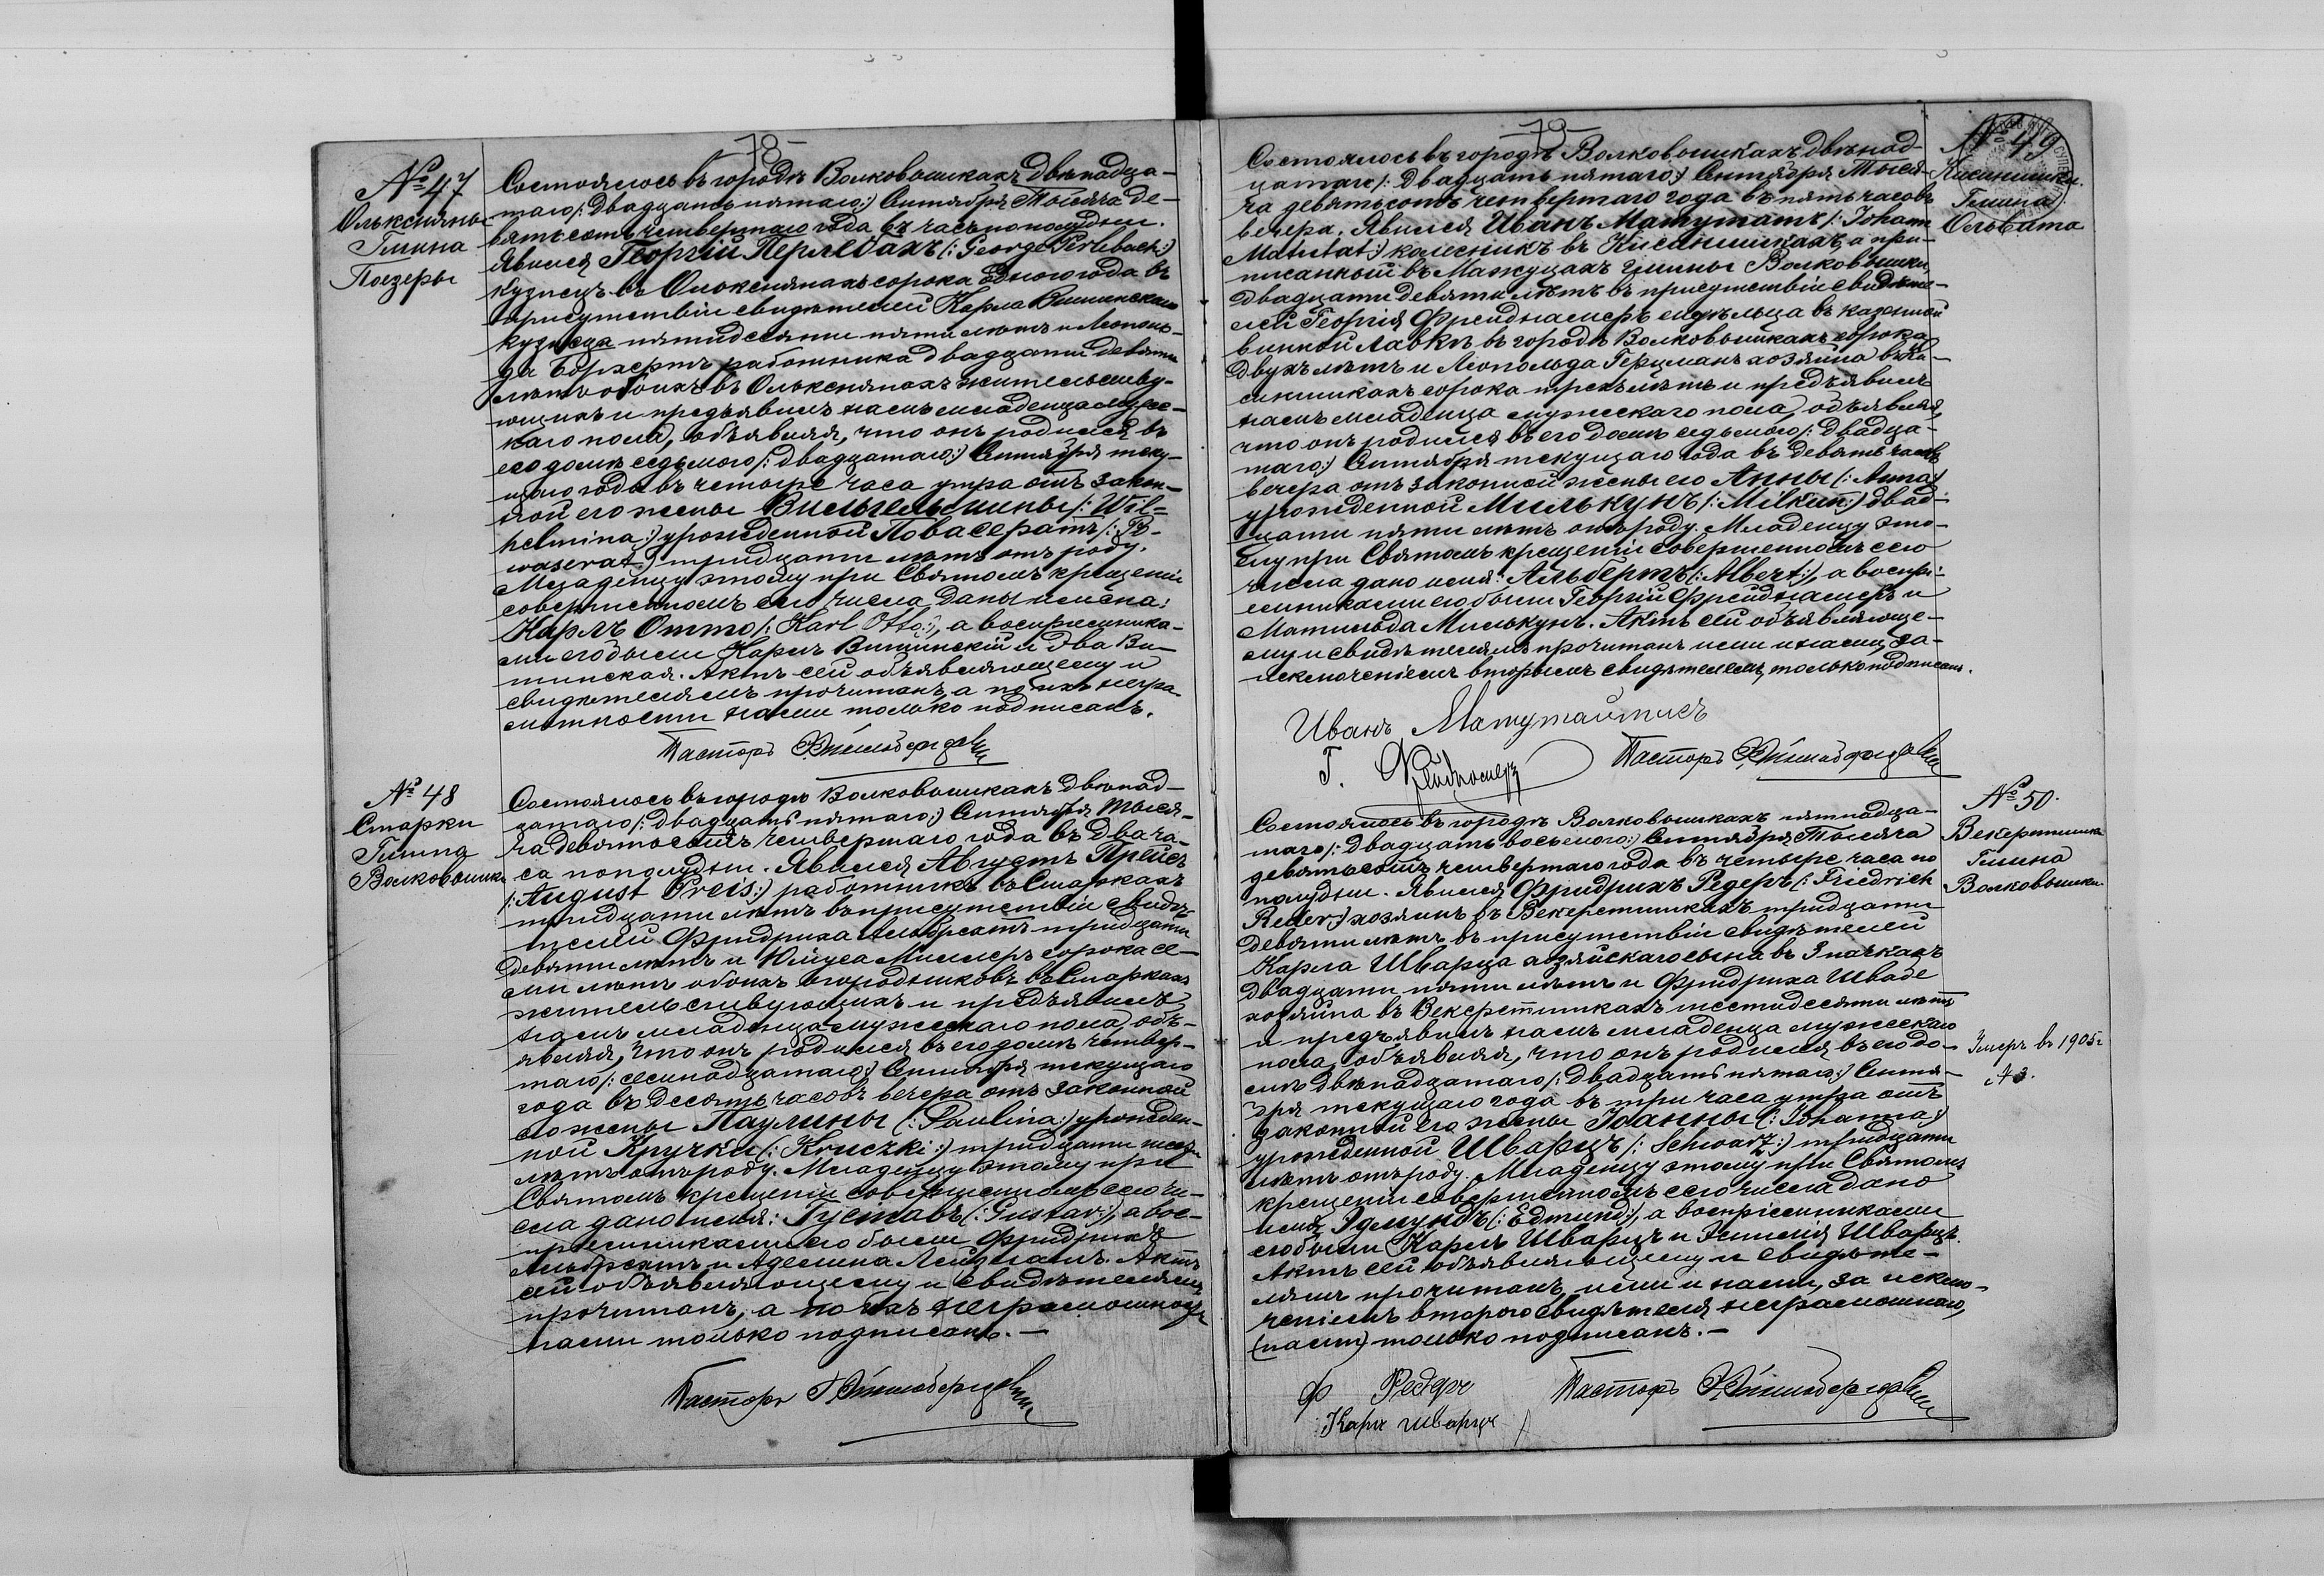 78
№ 47
Ольксняны
Гмина
Поезеры
Состоялось въ городѣ Волковышкахъ двѣнадца-
таго /: двадцать пятаго :/ Сентября Тысяча де-
вятьсотъ четвертаго года въ часъ пополудни.
Явился Георгій Перлебахъ (: George Perlebach :)
кузнецъ въ Ольксянахъ сорока одного года въ
присутствіи свидѣтелей Карла Вишинскаго
кузнеца пятидесяти пяти лѣтъ и Леополь-
да Боржертъ работника двадцати девяти
лѣтъ обоихъ въ Ольксянахъ жительству-
ющихъ и предъявилъ намъ младенца мужес-
каго пола, объявляя, что онъ родился въ
его домѣ седьмого /: двадцатаго :/ Сентября теку-
щаго года въ четыре часа утра отъ закон-
ной его жены Вильгельмины /: Wil=
helmina :/ урожденной Повасератъ /: Po-
waserat :/ тридцати лѣтъ отъ роду.
Младенцу этому при Святомъ крещеніи
совершенномъ сего числа даны имена:
Карлъ Отто /: Karl Otto :/, а воспріемника-
ми его были Карлъ Вишинскій и Эва Ви-
шинская. Актъ сей объявляющему и
свидѣтелямъ прочитанъ, а по ихъ негра-
мотности нами только подписанъ.
Пасторъ
№ 48
Старки
Гмина
Волковышки
Состоялось въ городѣ Волковышкахъ двѣнад-
цатаго /: двадцать пятаго :/ Сентября Тыся-
ча девятьсотъ четвертаго года въ два ча-
са пополудни. Явился Августъ Прейсъ
/: August Preis :/ работникъ въ Старкахъ
тридцати лѣтъ въ присутствіи свидѣ-
телей Фридриха Альбрехтъ тридцати
девяти лѣтъ и Юліуса Миллеръ сорока се-
ми лѣтъ обоихъ огородниковъ въ Старкахъ
жительствующихъ и предъявилъ
намъ младенца мужескаго пола, объ-
являя, что онъ родился въ его домѣ четвер-
таго /: семнадцатаго :/ Сентября текущаго
года въ десять часовъ вечера отъ законной
его жены Паулины (: Paulina :) урожден-
ной Кручки (: Kruczki :) тридцати шести
лѣтъ отъ роду. Младенцу этому при
Святомъ крещеніи совершенномъ сего чи-
сла дано имя: Густавъ (: Gustav :), а вос-
пріемниками его были Фридрихъ
Альбрехтъ и Аделина Лейдманъ. Актъ
сей объявляющему и свидѣтелямъ
прочитанъ, а по ихъ неграмотности
нами только подписанъ. —
Пасторъ
79
№ 49
Кисинишки
Гмина
Ольвита
Состоялось въ городѣ Волковышкахъ двѣнад-
цатаго /: двадцать пятаго :/ Сентября Тыся-
ча девятьсотъ четвертаго года въ пять часовъ
вечера. Явился Иванъ Матутатъ /: Johann
Matutat :/ колесникъ въ Кисинишкахъ, а при-
писанный въ Мажуцахъ гмины Волковышки,
двадцати девяти лѣтъ въ присутствіи свидѣте-
лей Георгія Фрейднамеръ сидѣльца въ казенной
винной лавкѣ въ городѣ Волковышкахъ сорока
двухъ лѣтъ и Леопольда Герцманъ хозяина въ Ки-
синишкахъ сорока трехъ лѣтъ и предъявилъ
намъ младенца мужескаго пола, объявляя,
что онъ родился въ его домѣ седьмого /: двадца-
таго :/ Сентября текущаго года въ девять часовъ
вечера отъ законной жены его Анны (: Anna :)
урожденной Милькунъ /: Milkun :/ двад-
цати пяти лѣтъ отъ роду. Младенцу это-
му при Святомъ крещеніи совершенномъ сего
числа дано имя: Альбертъ (: Albert :), а воспрі-
емниками его были Георгій Фрейднамеръ и
Матильда Милькунъ. Актъ сей объявляюще-
му и свидѣтелямъ прочитанъ ими и нами, за
исключеніемъ вторымъ свидѣтелемъ, только подписанъ.
Иванъ Матутайтисъ
Г. Пасторъ
№ 50.
Гмина
Волковышки
Состоялось въ городѣ Волковышкахъ пятнадца-
таго /: двадцать восьмого :/ Сентября Тысяча
девятьсотъ четвертаго года въ четыре часа по
полудни. Явился Фридрихъ Редеръ (: Friedrich
Reder :) хозяинъ въ Векеротишкахъ тридцати
девяти лѣтъ въ присутствіи свидѣтелей
Карла Шварца хозяйскаго сына въ Значкахъ
двадцати пяти лѣтъ и Фридриха Шваде
хозяина въ Векеротишкахъ шестидесяти лѣтъ
и предъявилъ намъ младенца мужескаго
пола, объявляя, что онъ родился въ его до-
мѣ двѣнадцатаго /: двадцать пятаго :/ Сентя-
бря текущаго года въ три часа утра отъ
законной его жены Іоанны (: Johanna :)
урожденной Шварцъ /: Schwarz :/ тридцати
лѣтъ отъ роду. Младенцу этому при Святомъ
крещеніи совершенномъ сего числа дано
имя Эдмундъ (: Edmund :), а воспріемниками
его были Карлъ Шварцъ и Эмилія Шварцъ.
Актъ сей объявляющему и свидѣте-
лямъ прочитанъ, ими и нами, за исклю-
ченіемъ второго свидѣтеля неграмотнаго,
(нами) только подписанъ. —
Умеръ въ 1905 г.
№ 3.
Ф Редеръ Пасторъ
Карл Шварцъ